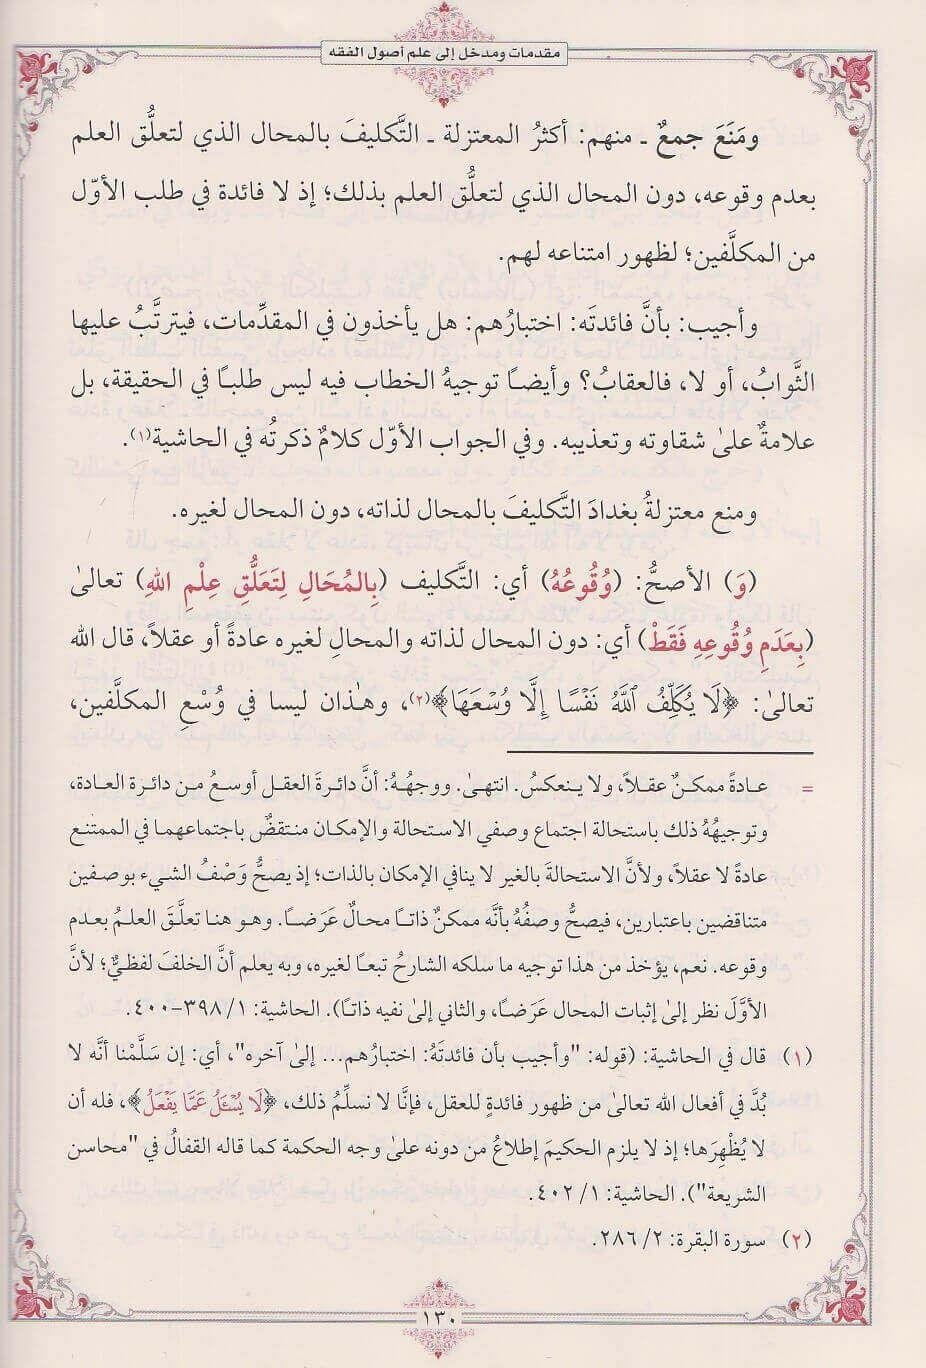 مقدمات ومدخل إلى علم أصول الفقه
ومَنَعَ جمعٌ ـ منهم: أكثرُ المعتزلة ـ التَّكليفَ بالمحال الذي لتعلُّق العلم
بعدم وقوعه، دون المحال الذي لتعلُّق العلم بذلك؛ إذ لا فائدة في طلب الأوّل
من المكلَّفين؛ لظهور امتناعه لهم.
وأجيب: بأنَّ فائدتَه: اختبارُهم: هل يأخذون في المقدِّمات، فيترتَّبُ عليها
الثَّوابُ، أو لا، فالعقابُ؟ وأيضاً توجيهُ الخطاب فيه ليس طلباً في الحقيقة، بل
علامةٌ علىٰ شقاوته وتعذيبه. وفي الجواب الأوّل كلامٌ ذكرتُه في الحاشية(١).
ومنع معتزلةُ بغدادَ التَّكليفَ بالمحال لذاته، دون المحال لغيره.
(وَ) الأصحُّ: (وُقُوعُهُ) أي: التَّكليف (بِالمُحَالِ لِتَعَلُّقِ عِلْمِ اللهِ) تعالىٰ
(بِعَدَمِ وُقُوعِهِ فَقَطْ) أي: دون المحال لذاته والمحالِ لغيره عادةً أو عقلاً، قال الله
تعالىٰ: ﴿لَا يُكَلِّفُ ٱللَّهُ نَفْسًا إِلَّا وُسْعَهَا﴾(٢)، وهٰذان ليسا في وُسْعِ المكلَّفين،
= عادةً ممكنٌ عقلاً، ولا ينعكسُ. انتهىٰ. ووجهُهُ: أنَّ دائرةَ العقل أوسعُ من دائرة العادة،
وتوجيهُهُ ذلك باستحالة اجتماع وصفي الاستحالة والإمكان منتقضٌ باجتماعهما في الممتنع
عادةً لا عقلاً، ولأنَّ الاستحالةَ بالغير لا ينافي الإمكان بالذات؛ إذ يصحُّ وَصْفُ الشيء بوصفين
متناقضين باعتبارين، فيصحُّ وصفُهُ بأنَّه ممكنٌ ذاتاً محالٌ عَرَضاً. وهو هنا تعلَّق العلمُ بعدم
وقوعه. نعم، يؤخذ من هذا توجيه ما سلكه الشارحُ تبعاً لغيره، وبه يعلم أنَّ الخلفَ لفظيٌّ؛ لأنَّ
الأوَّلَ نظر إلىٰ إثبات المحال عَرَضاً، والثاني إلىٰ نفيه ذاتاً). الحاشية: ١/ ٣٩٨-٤٠٠.
(١) قال في الحاشية: (قوله: "وأجيب بأن فائدتَهُ: اختبارُهم... إلىٰ آخره"، أي: إن سَلَّمْنا أنَّه لا
بُدَّ في أفعال الله تعالىٰ من ظهور فائدةٍ للعقل، فإنَّا لا نسلِّمُ ذلك، ﴿لَا يُسْـَٔلُ عَمَّا يَفْعَلُ﴾، فله أن
لا يُظْهِرَها؛ إذ لا يلزم الحكيمَ إطلاعُ من دونه علىٰ وجه الحكمة كما قاله القفالُ في "محاسن
الشريعة"). الحاشية: ١/ ٤٠٢.
(٢) سورة البقرة: ٢/ ٢٨٦.
١٣٠